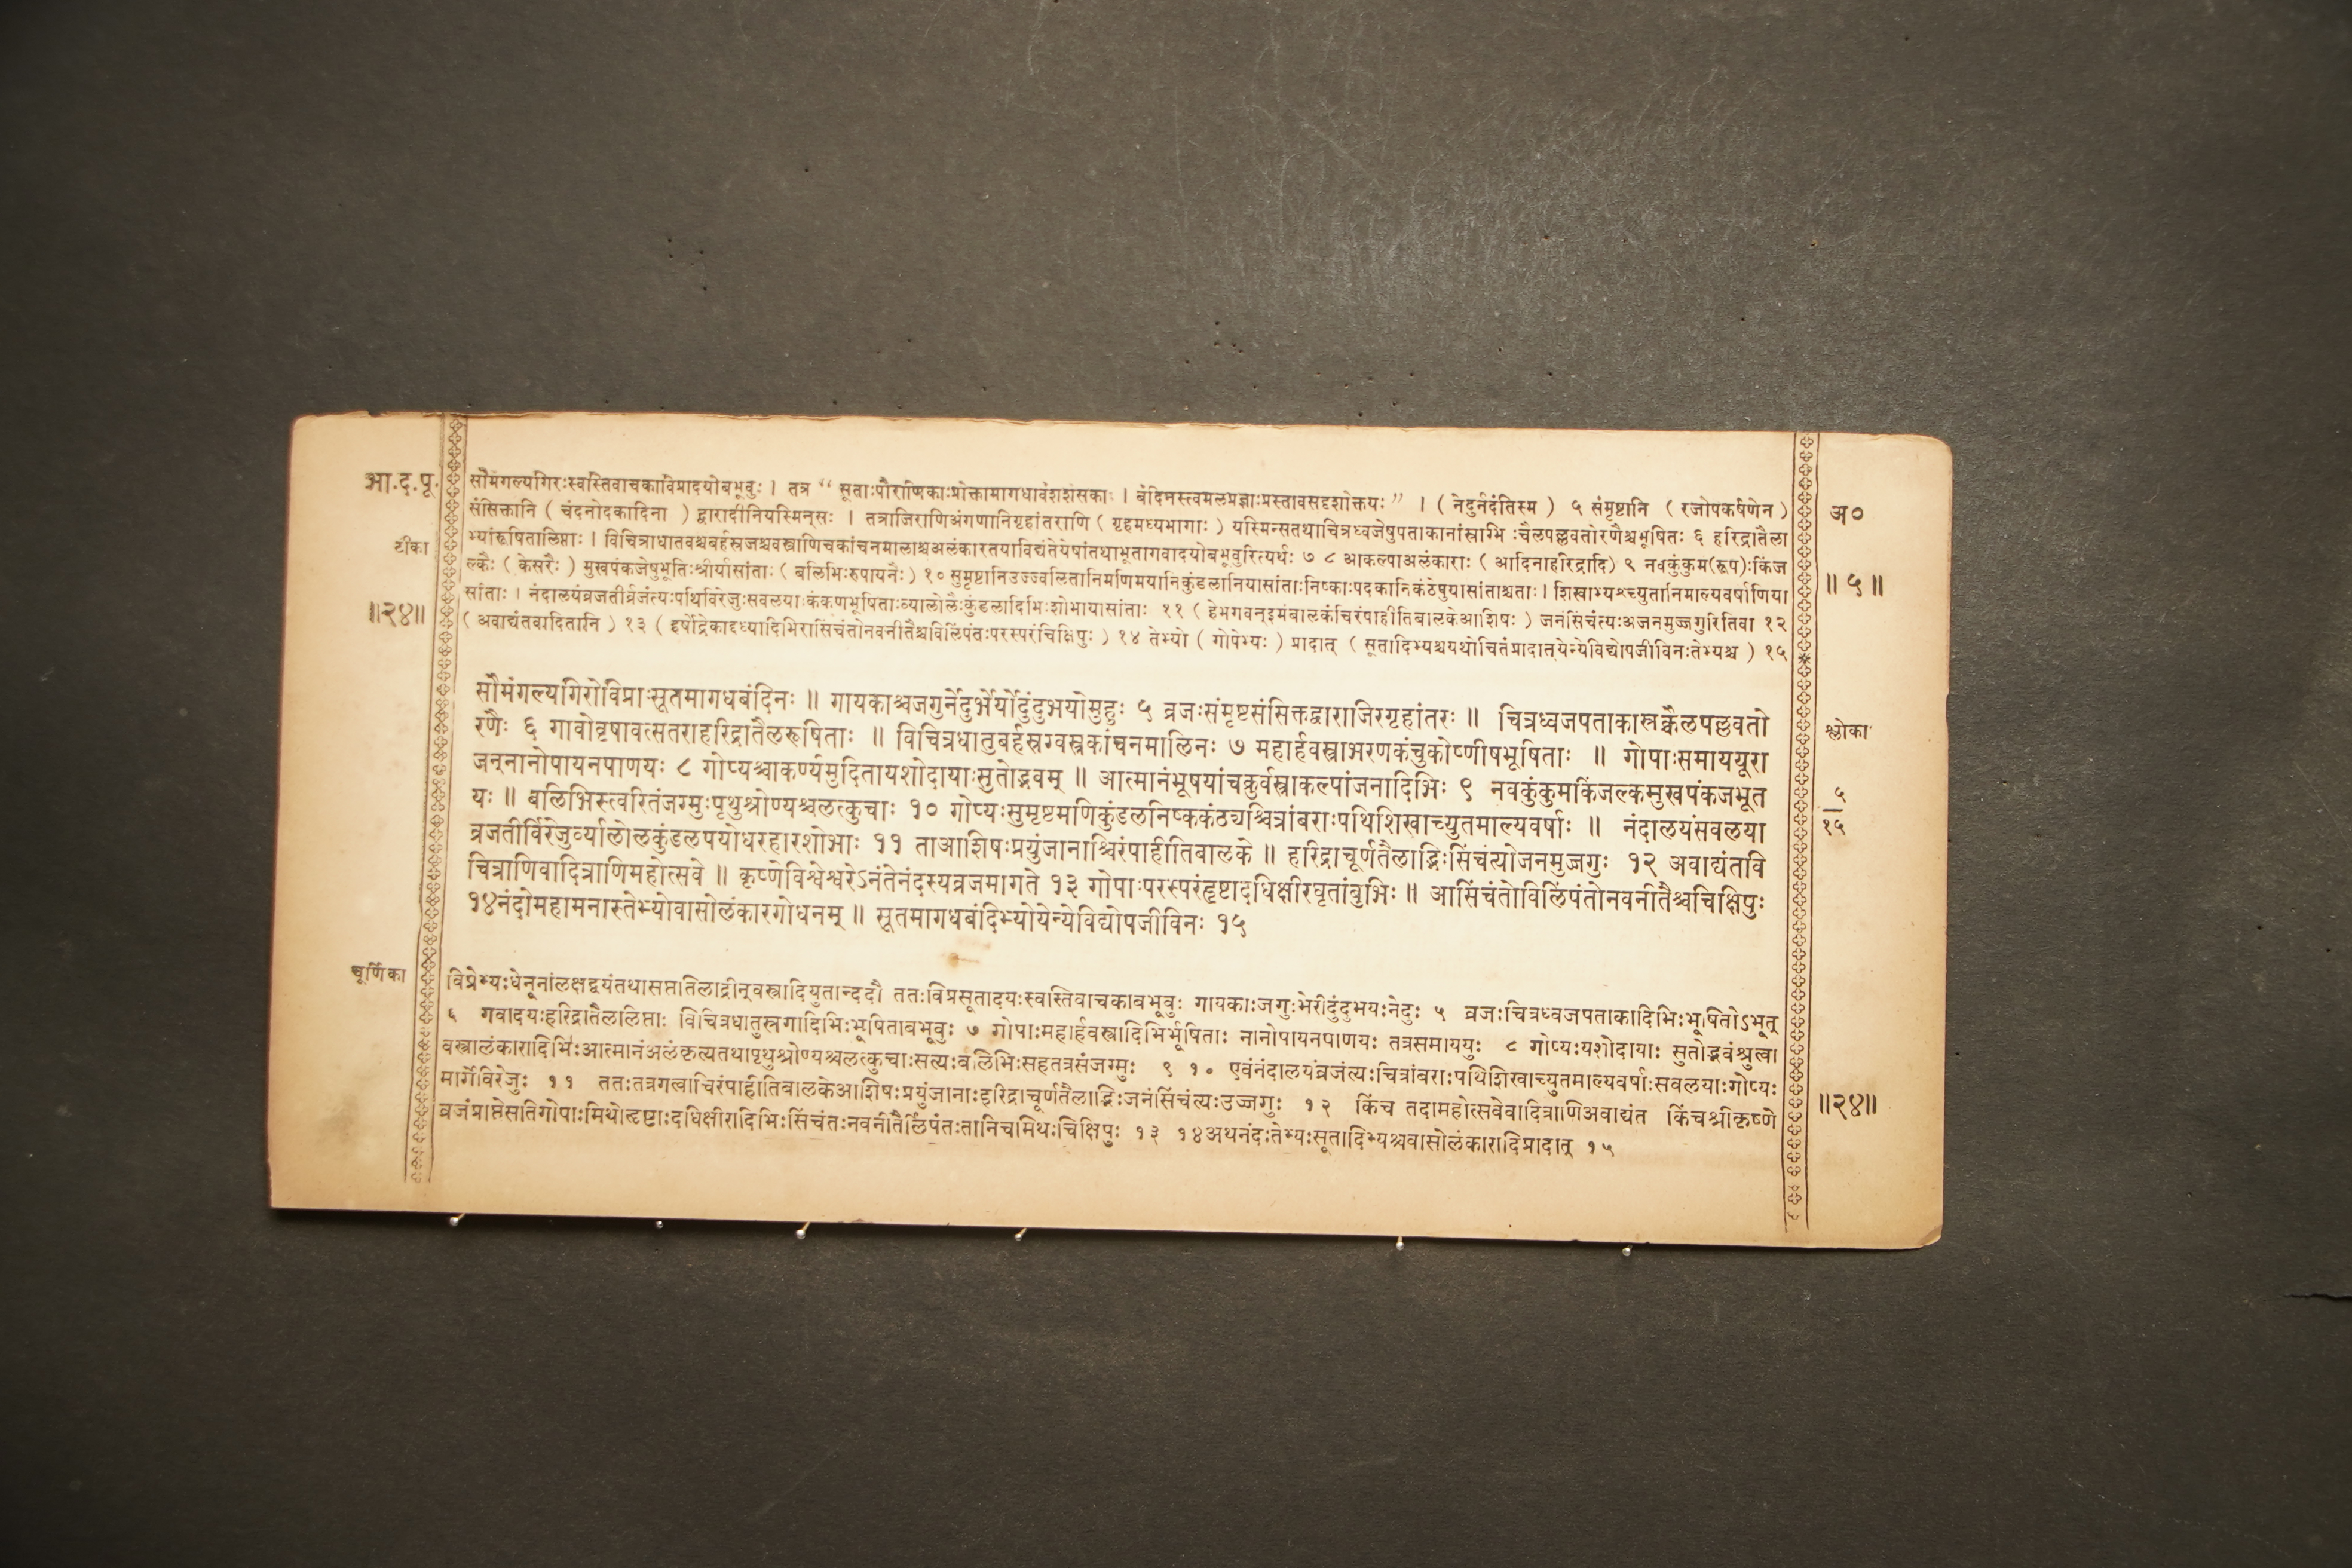 भा.द.पू.
टीका
॥२४॥
सौमंगल्यगिरःस्वस्तिवाचकाविप्रादयोबभूवुः । तत्र “ सूताःपौराणिकाःप्रोक्तामागधावंशशंसकाः । बंदिनस्त्वमलप्रज्ञाःप्रस्तावसदृशोक्तयः ” । ( नेदुर्नदंतिस्म ) ५ संमृष्टानि ( रजोपकर्षणेन )
संसिक्तानि ( चंदनोदकादिना ) द्वारादीनियस्मिन्सः । तत्राजिराणिअंगणानिगृहांतराणि ( गृहमध्यभागाः ) यस्मिन्सतथाचित्रध्वजेषुपताकानांस्रग्भिःचैलपल्लवतोरणैश्चभूषितः ६ हरिद्रातैला
भ्यांरूषितालिप्ताः । विचित्राधातवश्चबर्हस्रजश्चवस्त्राणिचकांचनमालाश्चअलंकारतयाविद्यंतेयेषांतथाभूतागवादयोबभूवुरित्यर्थः ७ ८ आकल्पाअलंकाराः ( आदिनाहरिद्रादि ) ९ नवकुंकुम(रूप)ःकिंज
ल्कैः ( केसरैः ) मुखपंकजेषुभूतिःश्रीर्यासांताः ( बलिभिःरुपायनैः ) १० सुमृष्टानिउज्ज्वलितानिमणिमयानिकुंडलानियासांताःनिष्काःपदकानिकंठेषुयासांताश्चताः । शिखाभ्यश्च्युतानिमाल्यवर्षाणिया
सांताः । नंदालयंव्रजतीर्व्रजंत्यःपथिविरेजुःसवलयाःकंकणभूषिताःव्यालोलैःकुंडलादिभिःशोभायासांताः ११ ( हेभगवन्इमंबालकंचिरंपाहीतिबालकेआशिषः ) जनंसिंचंत्यःअजनमुज्जगुरितिवा १२
( अवाद्यंतवादितानि ) १३ ( हर्षोद्रेकाद्दध्यादिभिरासिंचंतोनवनीतैश्चविलिंपंतःपरस्परंचिक्षिपुः ) १४ तेभ्यो ( गोपेभ्यः ) प्रादात् ( सूतादिभ्यश्चयथोचितंप्रादात्येन्येविद्योपजीविनःतेभ्यश्च ) १५
सौमंगल्यगिरोविप्राःसूतमागधबंदिनः ॥ गायकाश्चजगुर्नेदुर्भेर्योदुंदुभयोमुहुः ५ व्रजःसंमृष्टसंसिक्तद्वाराजिरगृहांतरः ॥ चित्रध्वजपताकास्रक्चैलपल्लवतो
रणैः ६ गावोवृषावत्सतराहरिद्रातैलरूषिताः ॥ विचित्रधातुबर्हस्रग्वस्त्रकांचनमालिनः ७ महार्हवस्त्राभरणकंचुकोष्णीषभूषिताः ॥ गोपाःसमाययूरा
जन्नानोपायनपाणयः ८ गोप्यश्चाकर्ण्यमुदितायशोदायाःसुतोद्भवम् ॥ आत्मानंभूषयांचक्रुर्वस्त्राकल्पांजनादिभिः ९ नवकुंकुमकिंजल्कमुखपंकजभूत
यः ॥ बलिभिस्त्वरितंजग्मुःपृथुश्रोण्यश्चलत्कुचाः १० गोप्यःसुमृष्टमणिकुंडलनिष्ककंठ्यश्चित्रांबराःपथिशिखाच्युतमाल्यवर्षाः ॥ नंदालयंसवलया
व्रजतीर्विरेजुर्व्यालोलकुंडलपयोधरहारशोभाः ११ ताआशिषःप्रयुंजानाश्चिरंपाहीतिबालके ॥ हरिद्राचूर्णतैलाद्भिःसिंचंत्योजनमुज्जगुः १२ अवाद्यंतवि
चित्राणिवादित्राणिमहोत्सवे ॥ कृष्णेविश्वेश्वरेऽनंतेनंदस्यव्रजमागते १३ गोपाःपरस्परंहृष्टादधिक्षीरघृतांबुभिः ॥ आसिंचंतोविलिंपंतोनवनीतैश्चचिक्षिपुः
१४नंदोमहामनास्तेभ्योवासोलंकारगोधनम् ॥ सूतमागधबंदिभ्योयेन्येविद्योपजीविनः १५
चूर्णिका
विप्रेभ्यःधेनूनांलक्षद्वयंतथासप्ततिलाद्रीन्वस्त्रादियुतान्ददौ ततःविप्रसूतादयःस्वस्तिवाचकाबभूवुः गायकाःजगुःभेरीदुंदुभयःनेदुः ५ व्रजःचित्रध्वजपताकादिभिःभूषितोऽभूत्
६ गवादयःहरिद्रातैललिप्ताः विचित्रधातुस्रगादिभिःभूषिताबभूवुः ७ गोपाःमहार्हवस्त्रादिभिर्भूषिताः नानोपायनपाणयः तत्रसमाययुः ८ गोप्यःयशोदायाः सुतोद्भवंश्रुत्वा
वस्त्रालंकारादिभिःआत्मानंअलंकृत्यतथापृथुश्रोण्यश्चलत्कुचाःसत्यःबलिभिःसहतत्रसंजग्मुः ९ १० एवंनंदालयंव्रजंत्यःचित्रांबराःपथिशिखाच्युतमाल्यवर्षाःसवलयाःगोप्यः
मार्गेविरेजुः ११ ततःतत्रगत्वाचिरंपाहीतिबालकेआशिषःप्रयुंजानाःहरिद्राचूर्णतैलाद्भिःजनंसिंचंत्यःउज्जगुः १२ किंच तदामहोत्सवेवादित्राणिअवाद्यंत किंचश्रीकृष्णे
व्रजंप्राप्तेसतिगोपाःमिथोहृष्टाःदधिक्षीरादिभिःसिंचंतःनवनीतैर्लिंपंतःतानिचमिथःचिक्षिपुः १३ १४अथनंदःतेभ्यःसूतादिभ्यश्चवासोलंकारादिप्रादात् १५
अ०
॥ ५ ॥
श्लोका
५
१५
॥२४॥